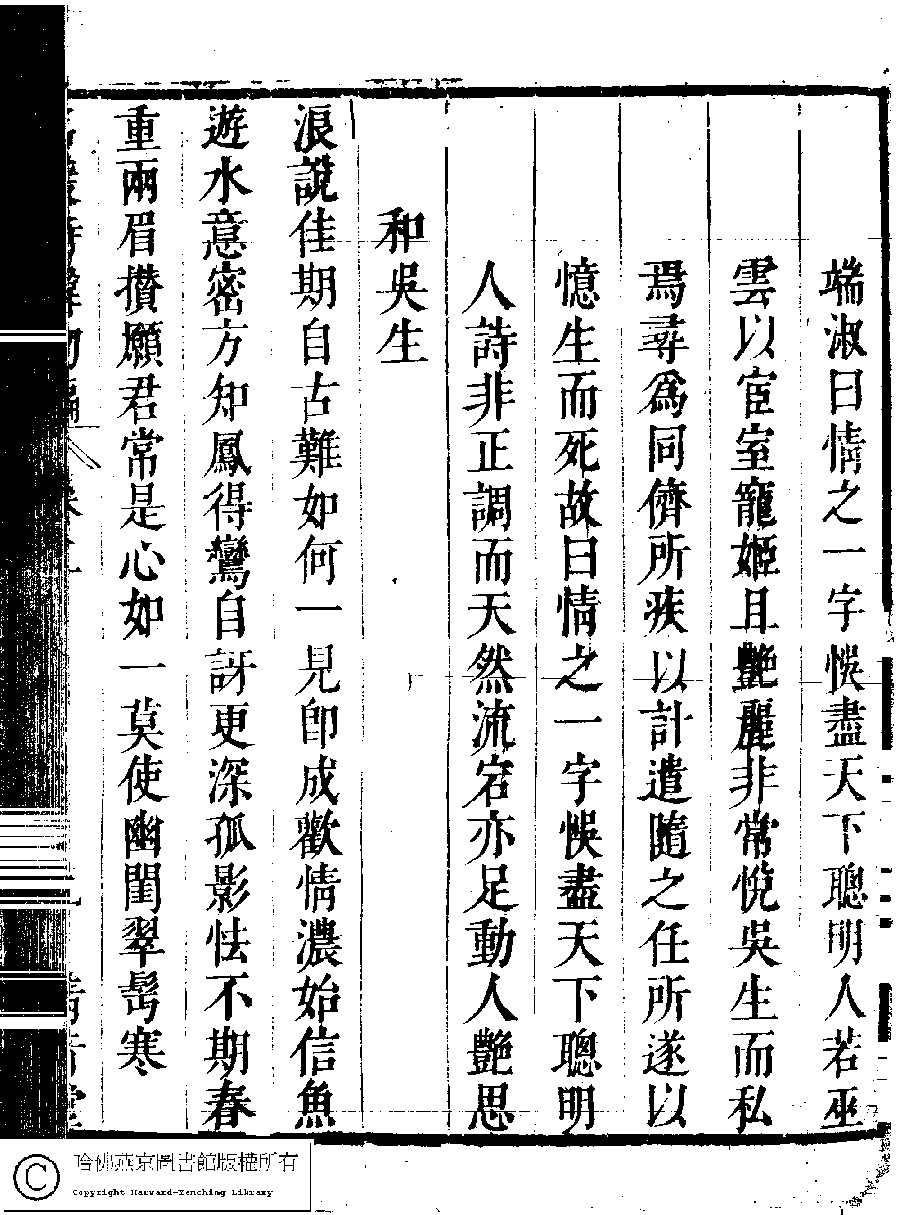 端淑曰情之一字悞盡天下聰明人若巫
雲以宦室寵姬且艷麗非常悅吳生而私
焉尋爲同儕所疾以計遣隨之任所遂以
憶生而死故曰情之一字悞盡天下聰明
人詩非正調而天然流宕亦足動人艷思
和吳生
浪說佳期自古難如何一見卽成歡情濃始信魚
遊水意密方知鳳得鸞自訝更深孤影怯不期春
重兩眉攢願君常是心如一莫使幽閨翠髩寒
哈佛燕京圖書館版權所有
Copyright Harvard-Yenching Library